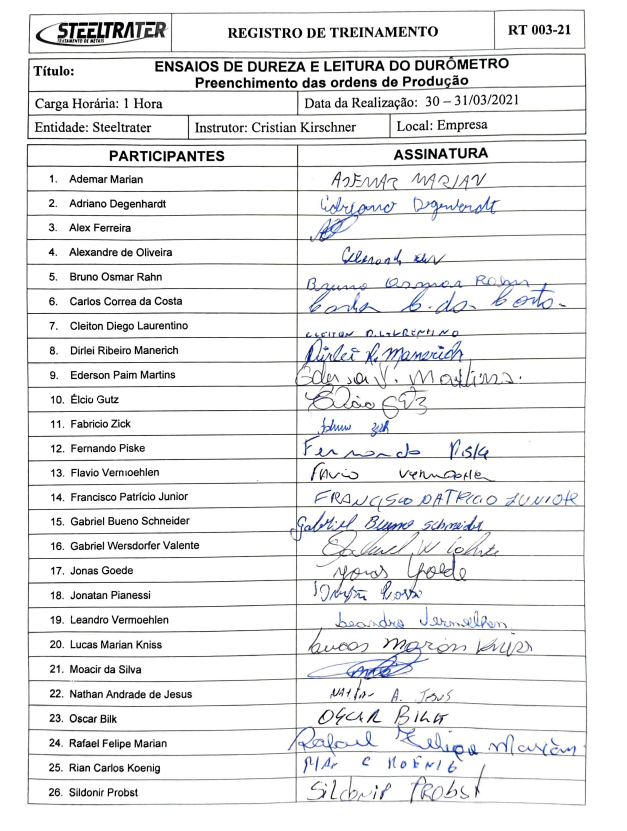 STEELTRATER
TRATAMENTO DE METAIS
REGISTRO DE TREINAMENTO
RT 003-21
Título: ENSAIOS DE DUREZA E LEITURA DO DURÔMETRO
Preenchimento das ordens de Produção
Carga Horária: 1 Hora Data da Realização: 30 – 31/03/2021
Entidade: Steeltrater Instrutor: Cristian Kirschner Local: Empresa
PARTICIPANTES ASSINATURA
1. Ademar Marian ADEMAR MARIAN
2. Adriano Degenhardt Adriano Degenhardt
3. Alex Ferreira
4. Alexandre de Oliveira
5. Bruno Osmar Rahn Bruno Osmar Rahn
6. Carlos Correa da Costa Carlos C. da Costa
7. Cleiton Diego Laurentino CLEITON D. LAURENTINO
8. Dirlei Ribeiro Manerich Dirlei R. Manerich
9. Ederson Paim Martins Ederson P. Martins
10. Élcio Gutz Élcio Gutz
11. Fabricio Zick
12. Fernando Piske Fernando Piske
13. Flavio Vermoehlen Flavio
14. Francisco Patrício Junior FRANCISCO PATRICIO JUNIOR
15. Gabriel Bueno Schneider Gabriel Bueno Schneider
16. Gabriel Wersdorfer Valente Gabriel W
17. Jonas Goede Jonas Goede
18. Jonatan Pianessi
19. Leandro Vermoehlen Leandro
20. Lucas Marian Kniss Lucas Marian Kniss
21. Moacir da Silva
22. Nathan Andrade de Jesus Nathan A. Jesus
23. Oscar Bilk OSCAR BILK
24. Rafael Felipe Marian Rafael Felipe Marian
25. Rian Carlos Koenig RIAN C KOENIG
26. Sildonir Probst Sildonir PROBST